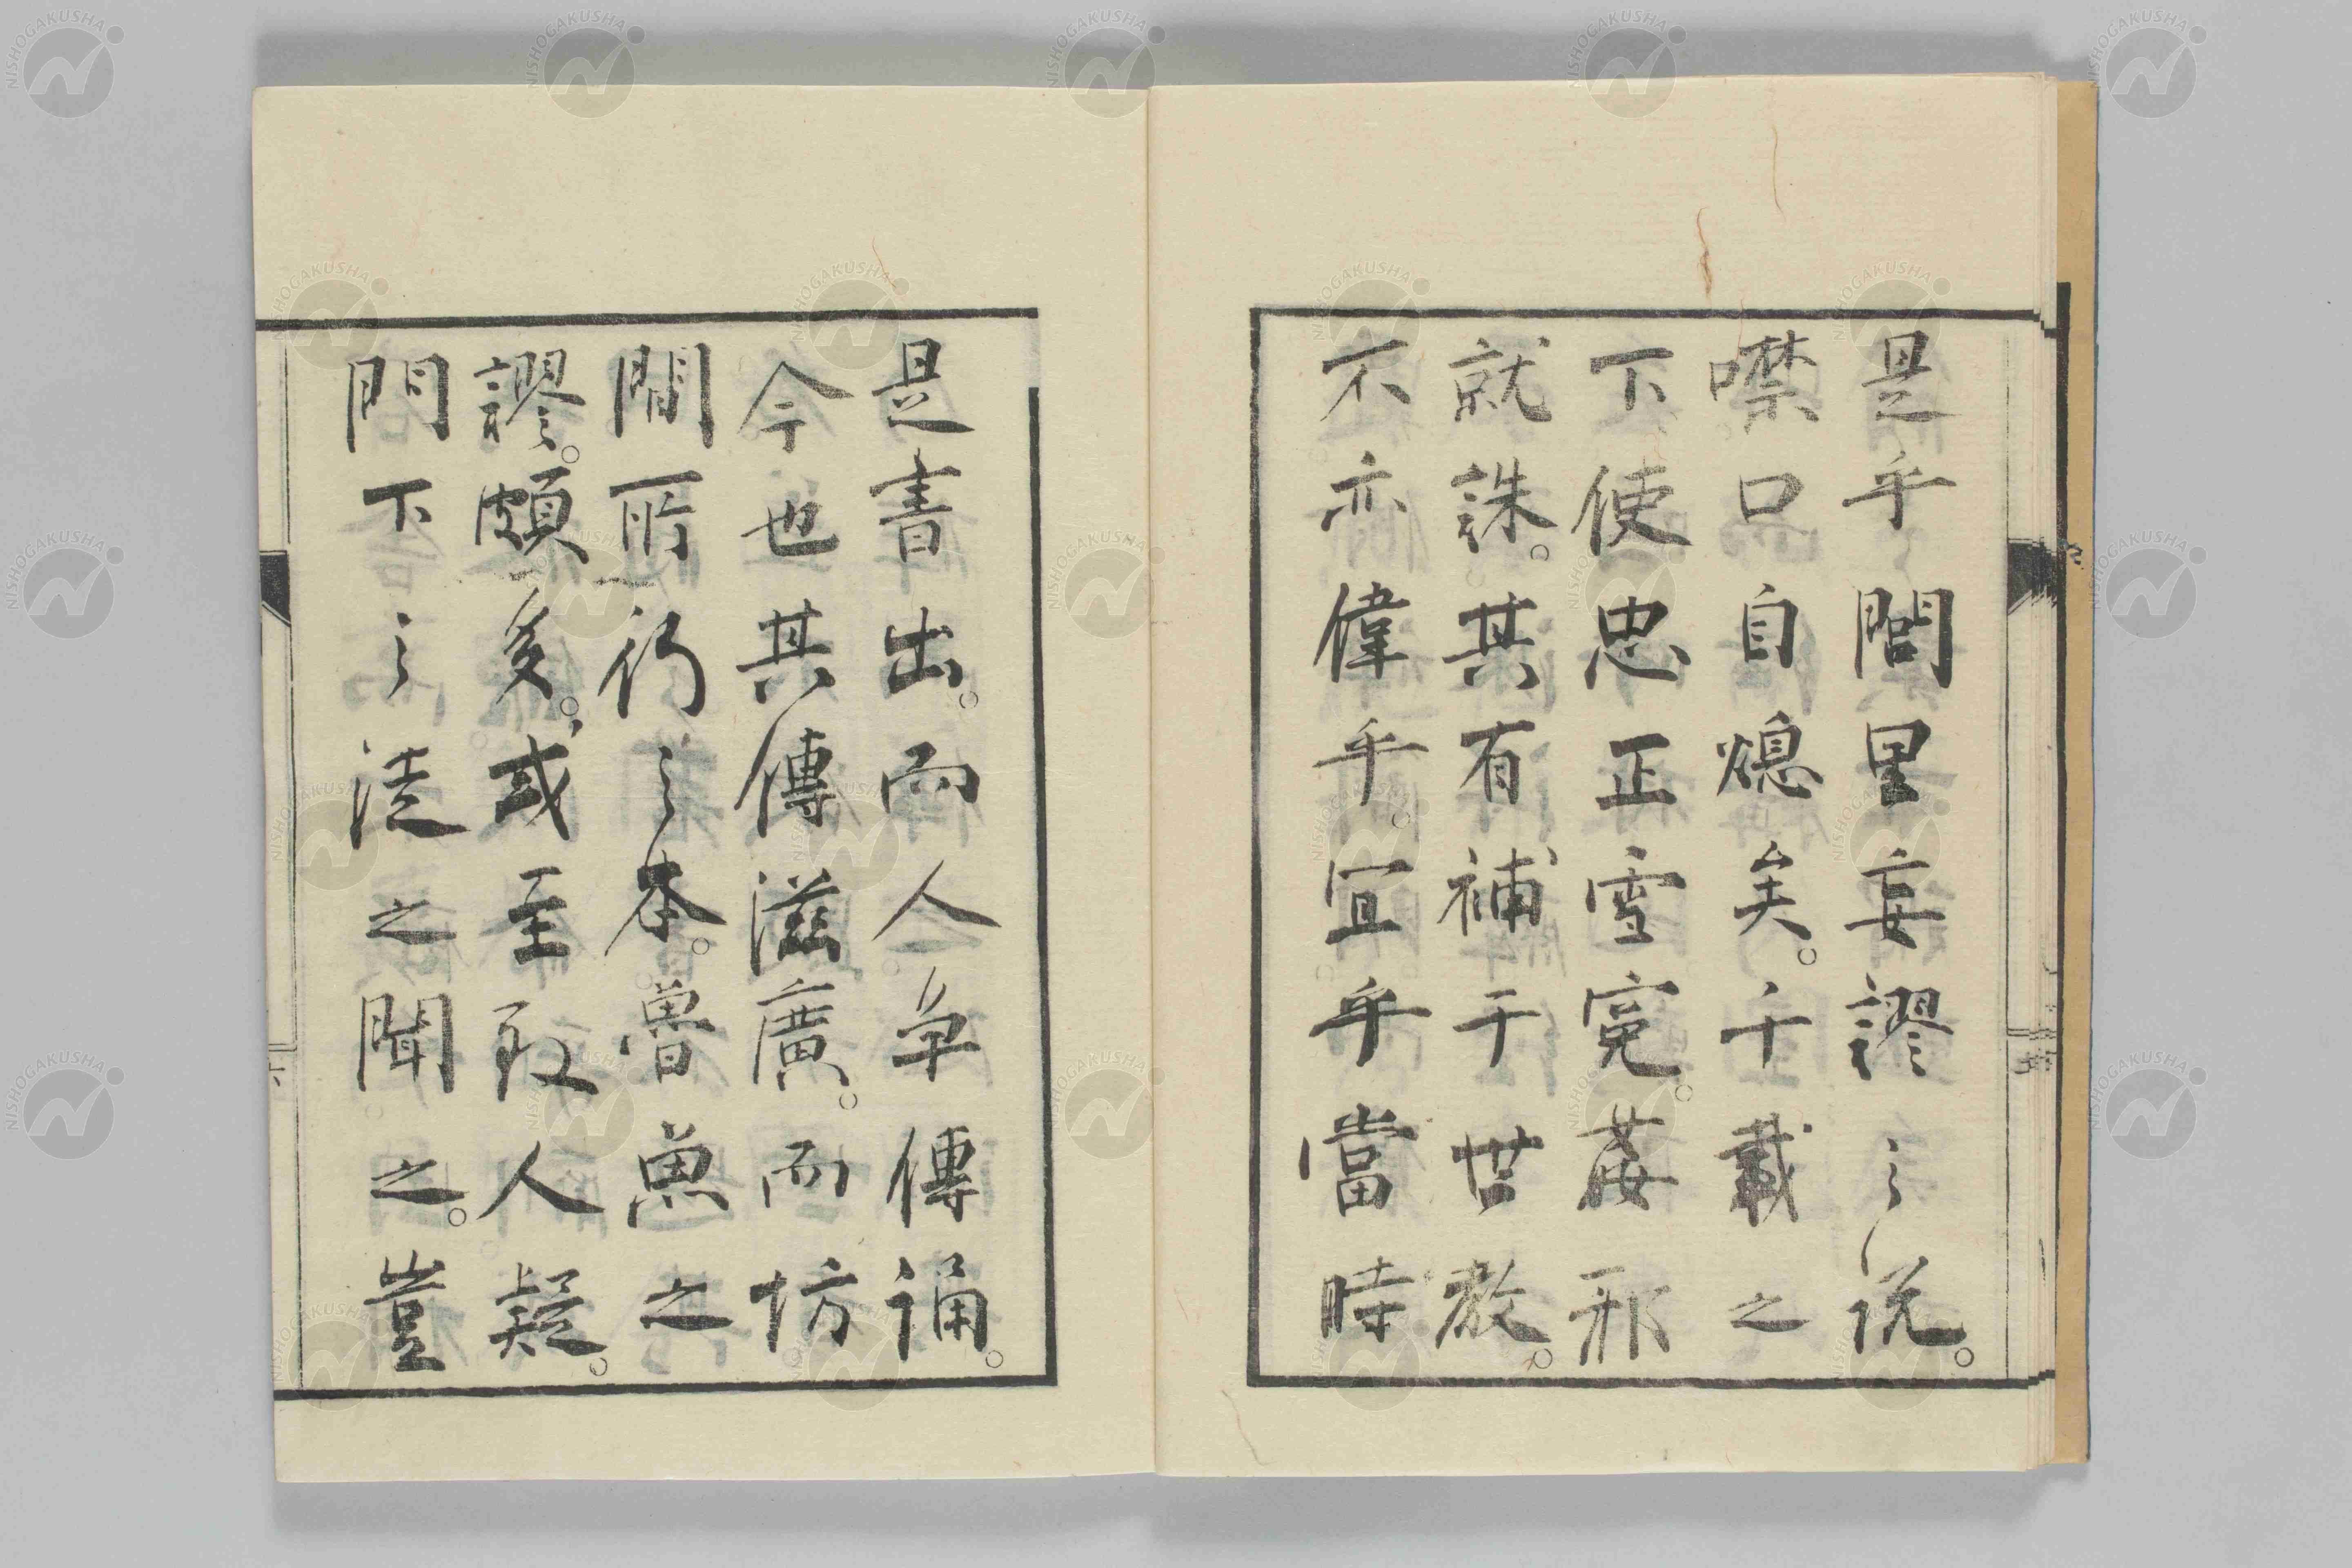 是乎閭里妄謬之說。
噤口自熄矣。千載之
下使忠正雪寃。姦邪
就誅。其有補于世教。
不亦偉乎。宜乎當時
是書出。而人争傳誦。
今也其傳滋廣。而坊
間所行之本。魯魚之
謬。頗多。或至致人疑。
門下之徒之聞之。豈
NISHOGAKUSHA